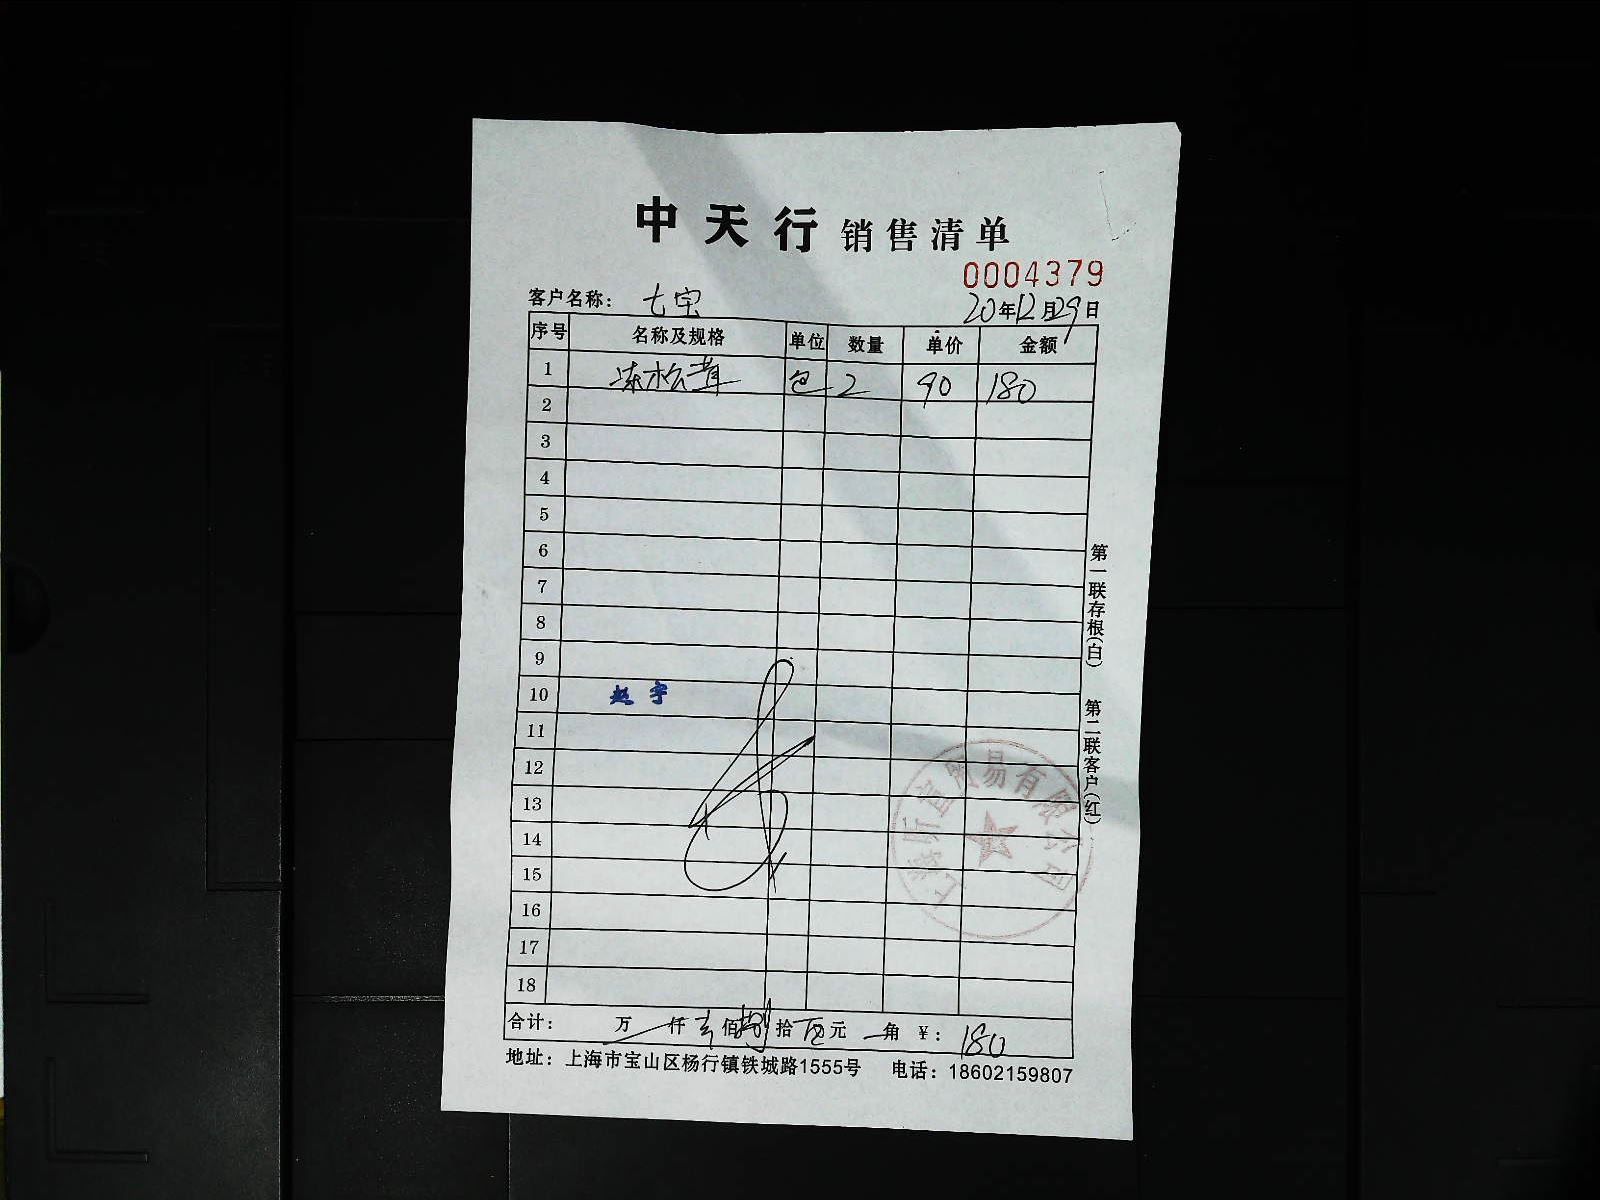 中天行 销售清单
0004379
客户名称： 七宝 20年12月29日
序号 名称及规格 单位 数量 单价 金额
1 冻松茸 包 2 90 180
2
3
4
5
6
7
8
9
10 赵宇
11
12
13
14
15
16
17
18
合计： 万 仟 壹佰捌拾 元 角 ￥：180
地址：上海市宝山区杨行镇铁城路1555号 电话：18602159807
第一联存根(白) 第二联客户(红)
贸易有限公司